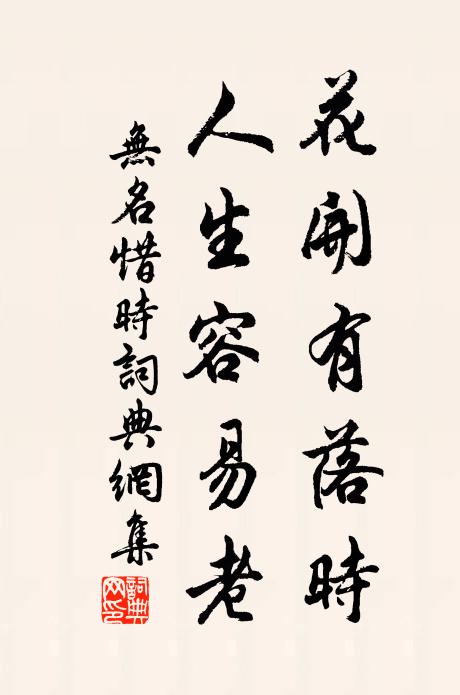 花開有落時
人生容易老
無名惜時詞典網集
詞典網印